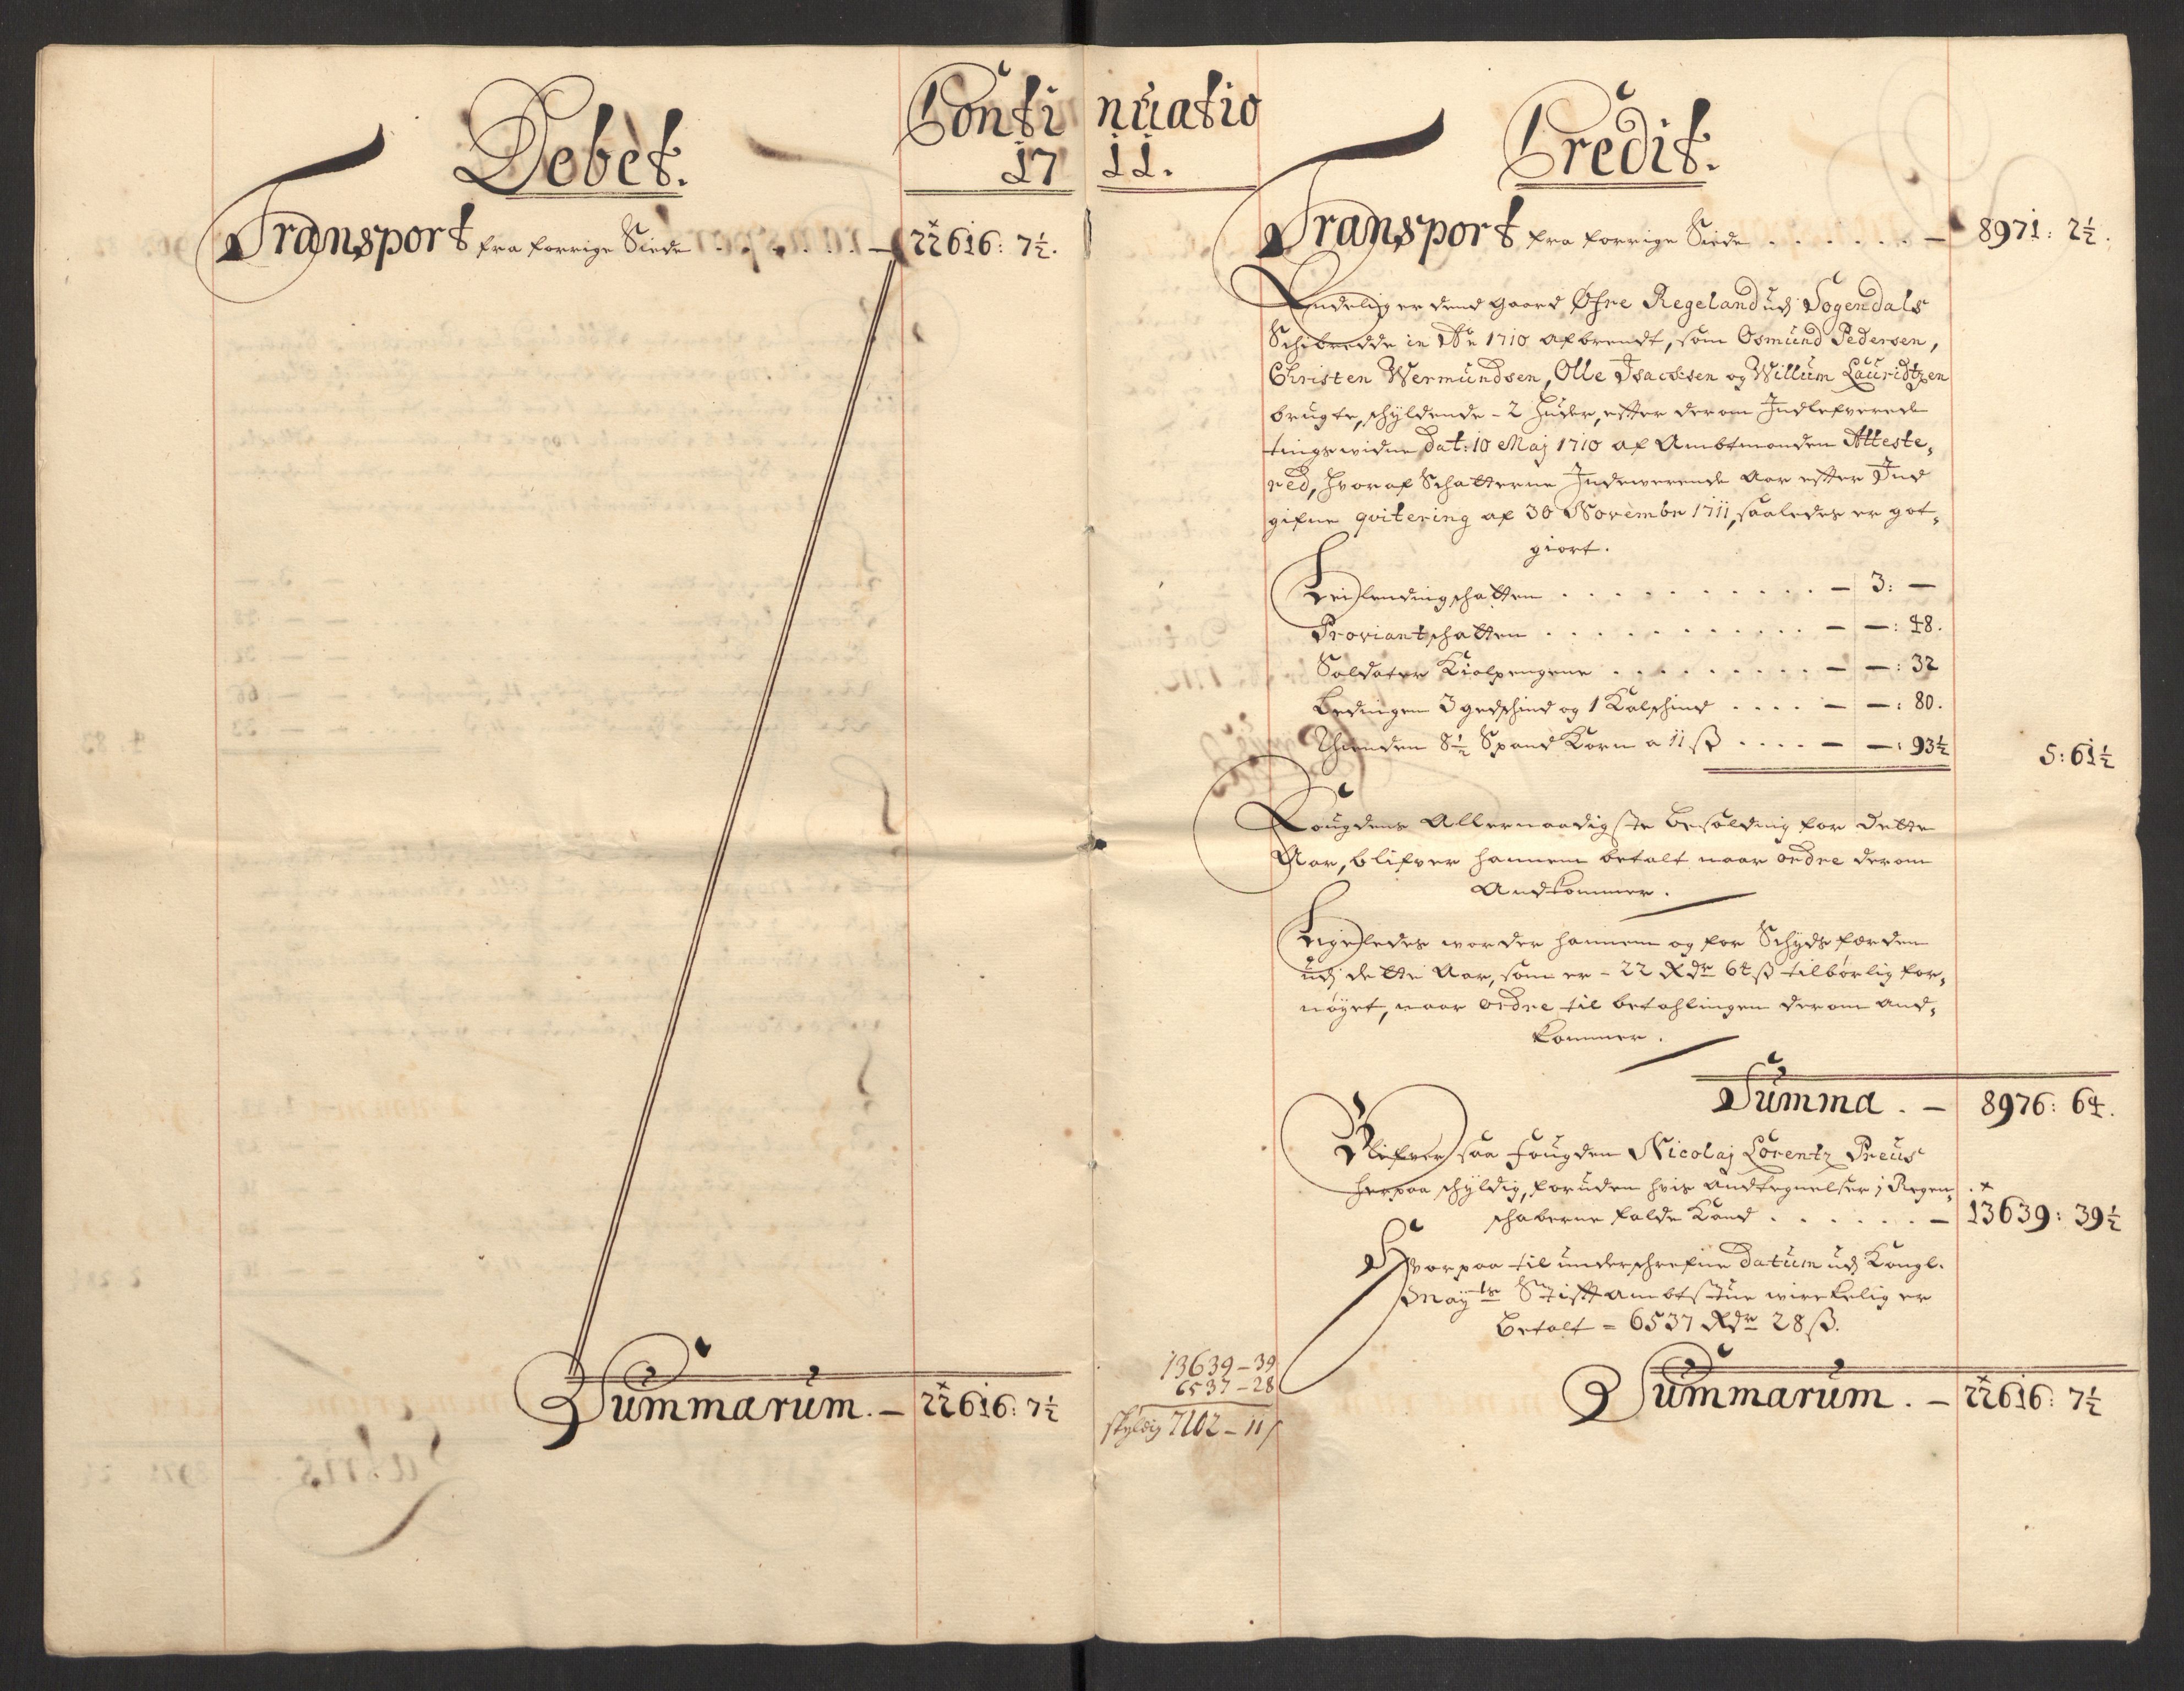 Debet.
Continuatio
1711.
Transport fra forrige Siede . . . . . . — 22616: 7½.
Summarum. — 22616: 7½
Credit.
Transport fra forrige Siede . . . . . . . — 8971: 2½.
Endelig er dend Gaard Øfre Regeland udj Sogendals
Schibredde in Ao 1710 afbrendt, som Osmund Pedersen,
Christen Wermundsen, Olle Isachsen og Willum Lauridtzen
brugte, schyldende - 2 Huder, effter derom Indlefverede
tingswidne Dat: 10 Maj 1710 af Ambtmanden Atteste-
red, hvoraf Schatterne Indewerende Aar effter Ind
gifne qvitering af 30 Novembr 1711, saaledes er got-
giort.
Leilendingschatten . . . . . . . . . . — 3: —
Proviantschatten . . . . . . . . . . . — —: 48.
Soldater Kiolpengene . . . . . . . . . — —: 32
Ledingen 3 gedschind og 1 Kalfschind . . . . — —: 80.
Thienden 8½ Spand Korn a 11 ß . . . . — —: 93½
5: 61½
Fougdens Allernaadigste Besolding for dette
Aar, blifver hannem betalt naar ordre derom
Andkommer.
Ligeledes worder hannem og for Schydsfærden
udj dette Aar, som er - 22 Rdr 64 ß tilbørlig for-
nøyet, naar ordre til betahlingen derom and-
kommer.
Summa. — 8976: 64.
Blifver saa Fougden Nicolaj Lorentz Preus
herpaa schyldig, foruden hvis Andtegnelser i Regen-
schaberne falde Kand . . . . . . . — 13639: 39½
Hvorpaa til underschrefne Datum udj Kongl.
Mayts Stifftambtstue wirckelig er
Betalt - 6537 Rdr 28 ß.
13639 - 39
6537 - 28
skyldig 7102 - 11 ß
Summarum. — 22616: 7½